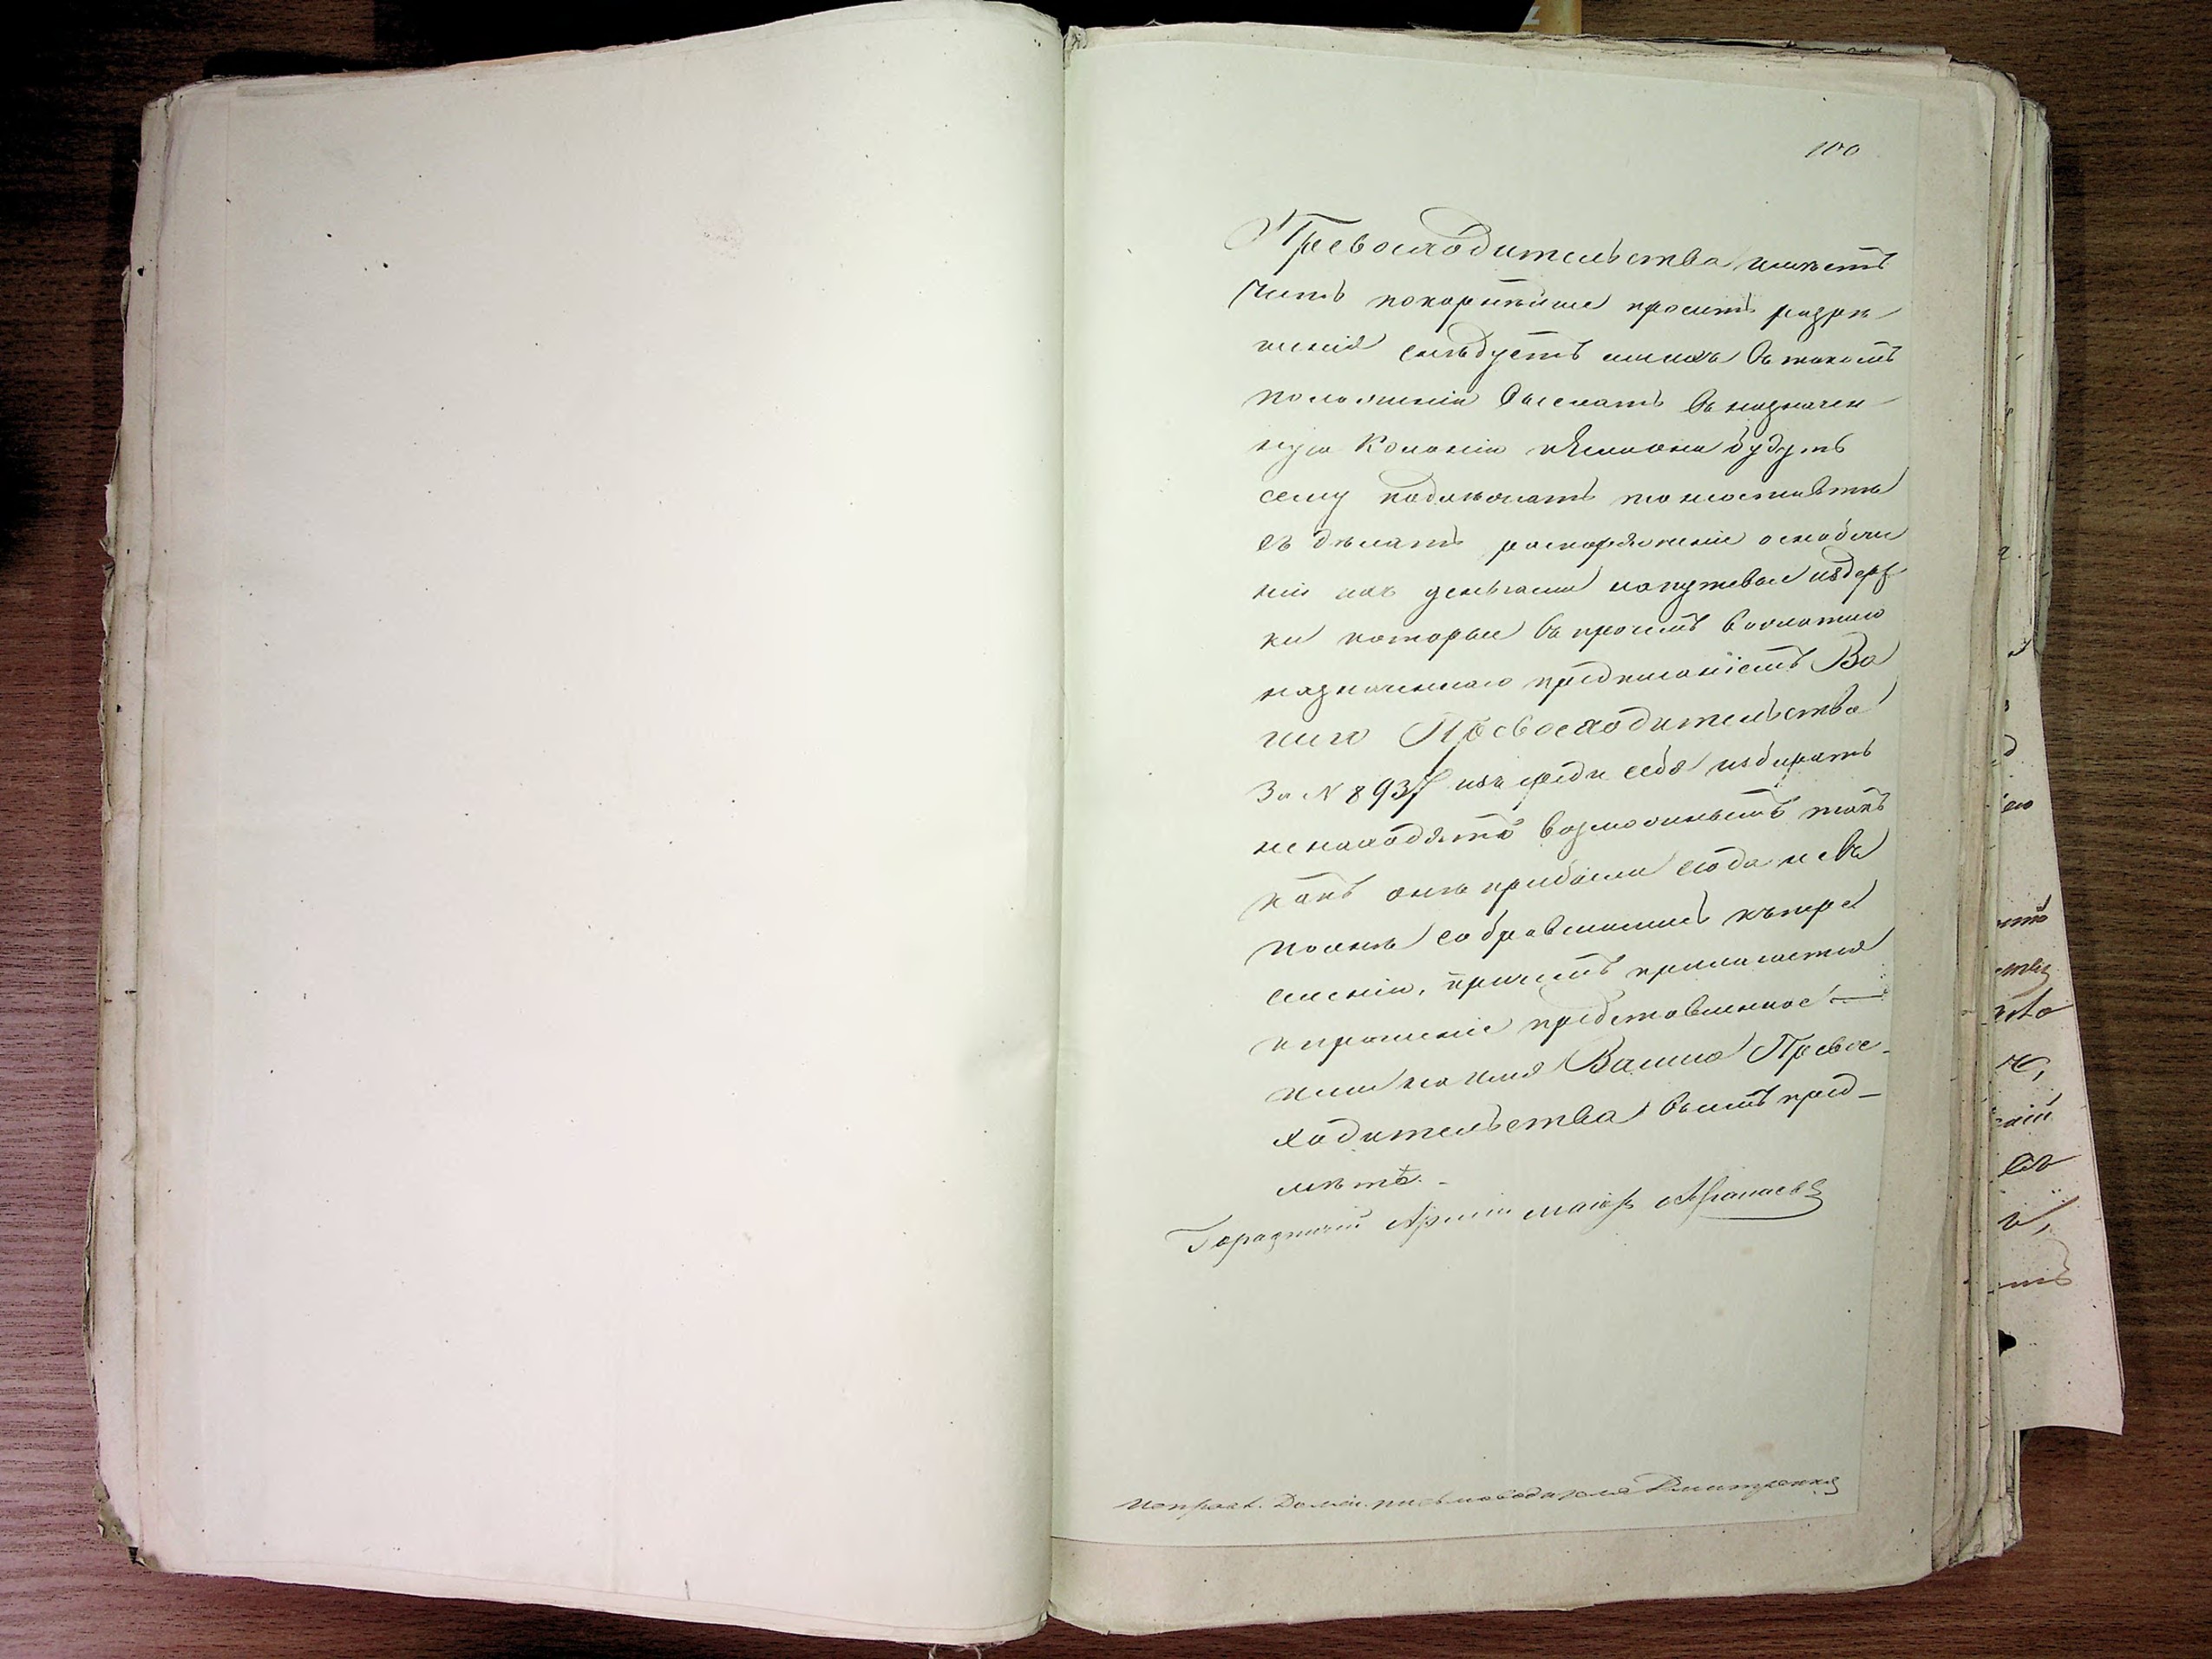 100
Превосходительства имѣетъ
честь покорнѣйше просить разрѣ
шенія слѣдуетъ ли ихъ въ такомъ
положеніи выслать въ назначен
ную Колонію и если они будутъ
сему подлежать то неоставьте
сдѣлать распоряженіе о снабже
ніи ихъ деньгами на путевые издерж
ки которые въ прочемъ в
назначеннаго предписаніемъ Ва
шего Превосходительства
За N 8937 изъ среди себя избирать
не находятъ возможнымъ такъ
какъ они прибыли сюда не въ
полнѣ собравшись къ пере
селенію, причемъ прилагается
и прошеніе представленное
ими на имя Вашего Превос-
ходительства въ семъ пред-
мѣтѣ.
Городничій Арміи маіоръ Афанасьевъ
Исправ. Долж. письмоводителя Дмитренко